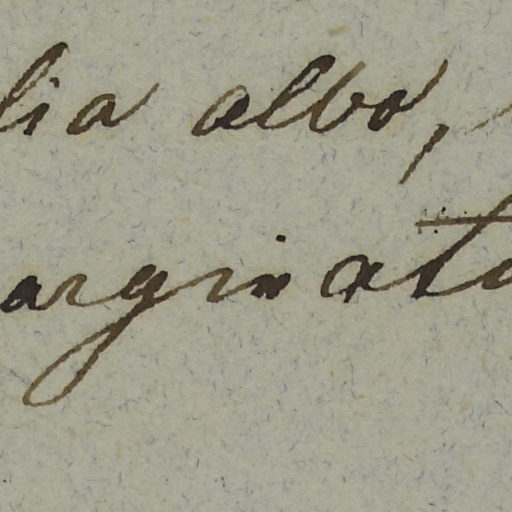 lia albo,
arginata